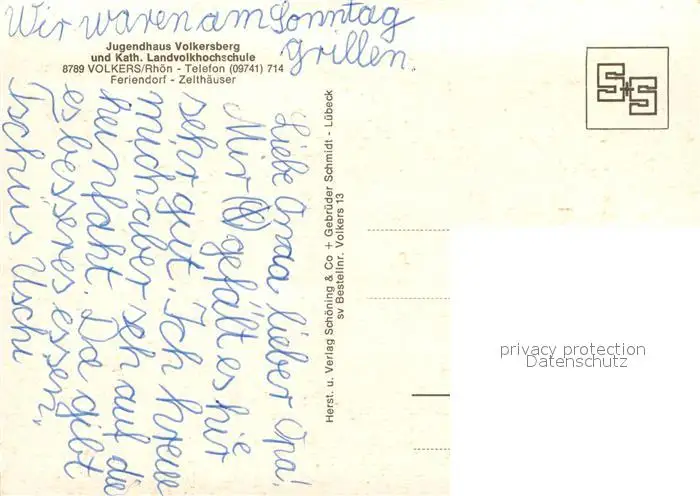 Wir waren am Sonntag
grillen.
Jugendhaus Volkersberg
und Kath. Landvolkhochschule
8789 VOLKERS/Rhön - Telefon (09741) 714
Feriendorf - Zelthäuser
Liebe Oma, lieber Opa!
Mir gefält es hir
sehr gut. Ich freue
mich aber seh auf die
heimfaht. Da gibt
es besseres essen.
Tschüs Uschi
Herst. u. Verlag Schöning & Co + Gebrüder Schmidt - Lübeck
sv Bestellnr. Volkers 13
S+S
privacy protection
Datenschutz